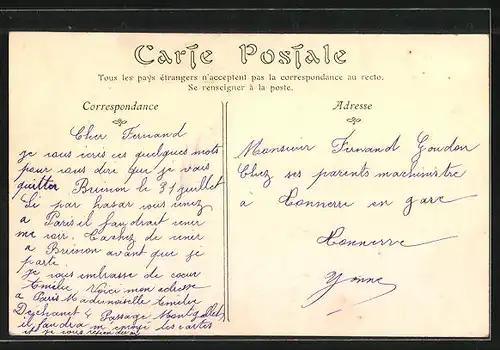 Carte Postale
Tous les pays étrangers n'acceptent pas la correspondance au recto.
Se renseigner à la poste.
Correspondance
Cher Fernand
je vous ecris ces quelques mots
pour vous dire que je vais
quitter Brinon le 31 juillet
Si par hasar vous venez
a Paris il faudrait venir
me voir. Tachez de venir
a Brinon avant que je
parte
je vous embrasse de cœur
Emilie, Voici mon adresse
a Paris Mademoiselle Emilie
4 Passage
il faudra m envoyé les cartes
et je vous
Adresse
Monsieur Fernand Goudon
Chez ses parents machiniste
à Tonnerre en gare
Tonnerre
Yonne